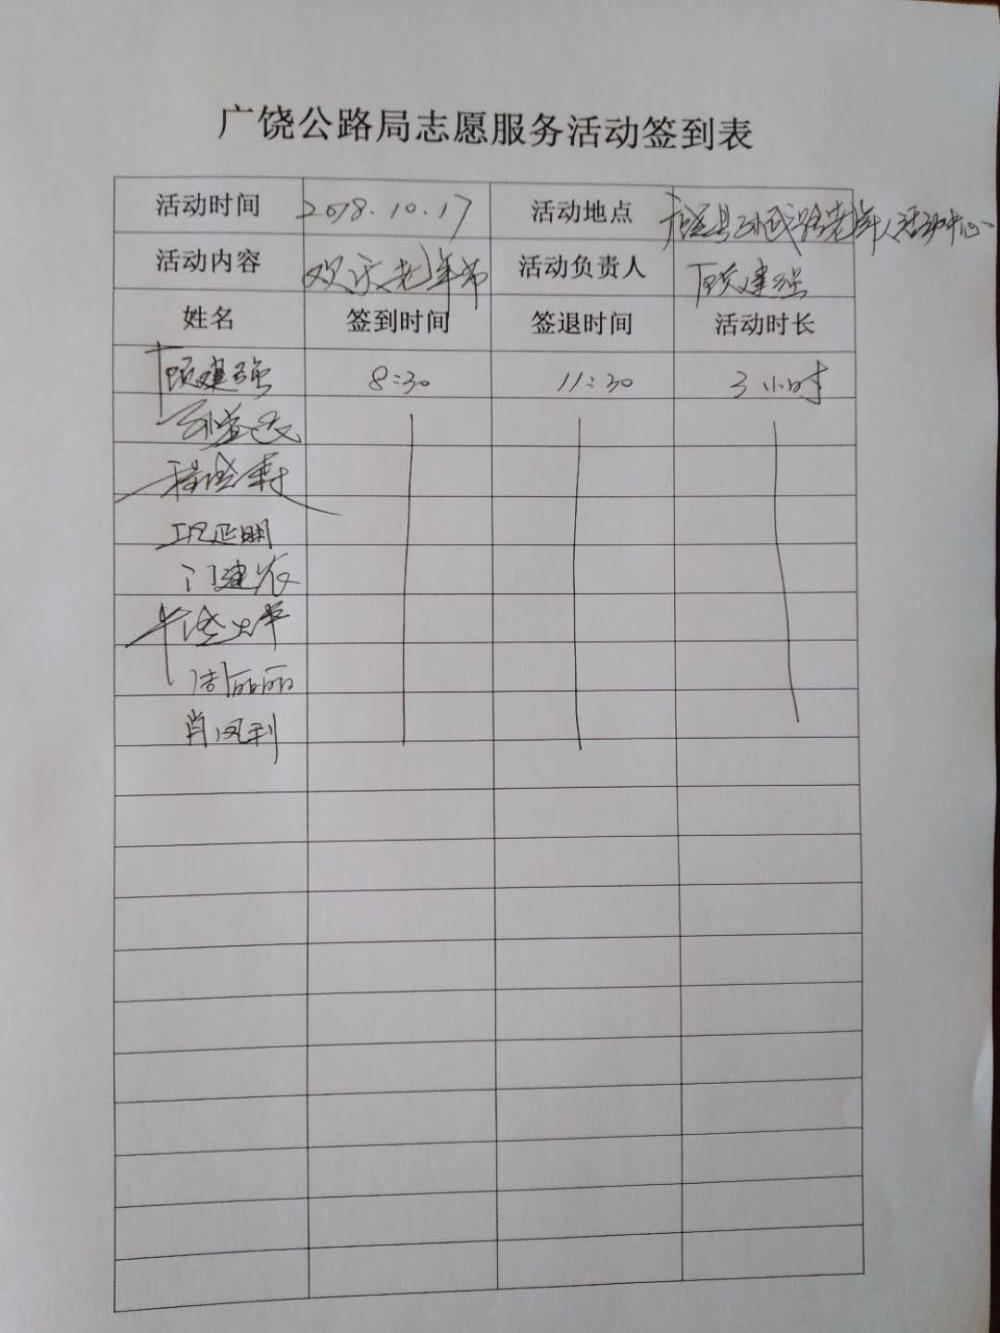 广饶公路局志愿服务活动签到表
活动时间 2018.10.17 活动地点 广饶县孙武路老年人活动中心
活动内容 欢乐老年节 活动负责人 顾建强
姓名 签到时间 签退时间 活动时长
顾建强 8:30 11:30 3小时
延明
门建农
周丽丽
肖凤利